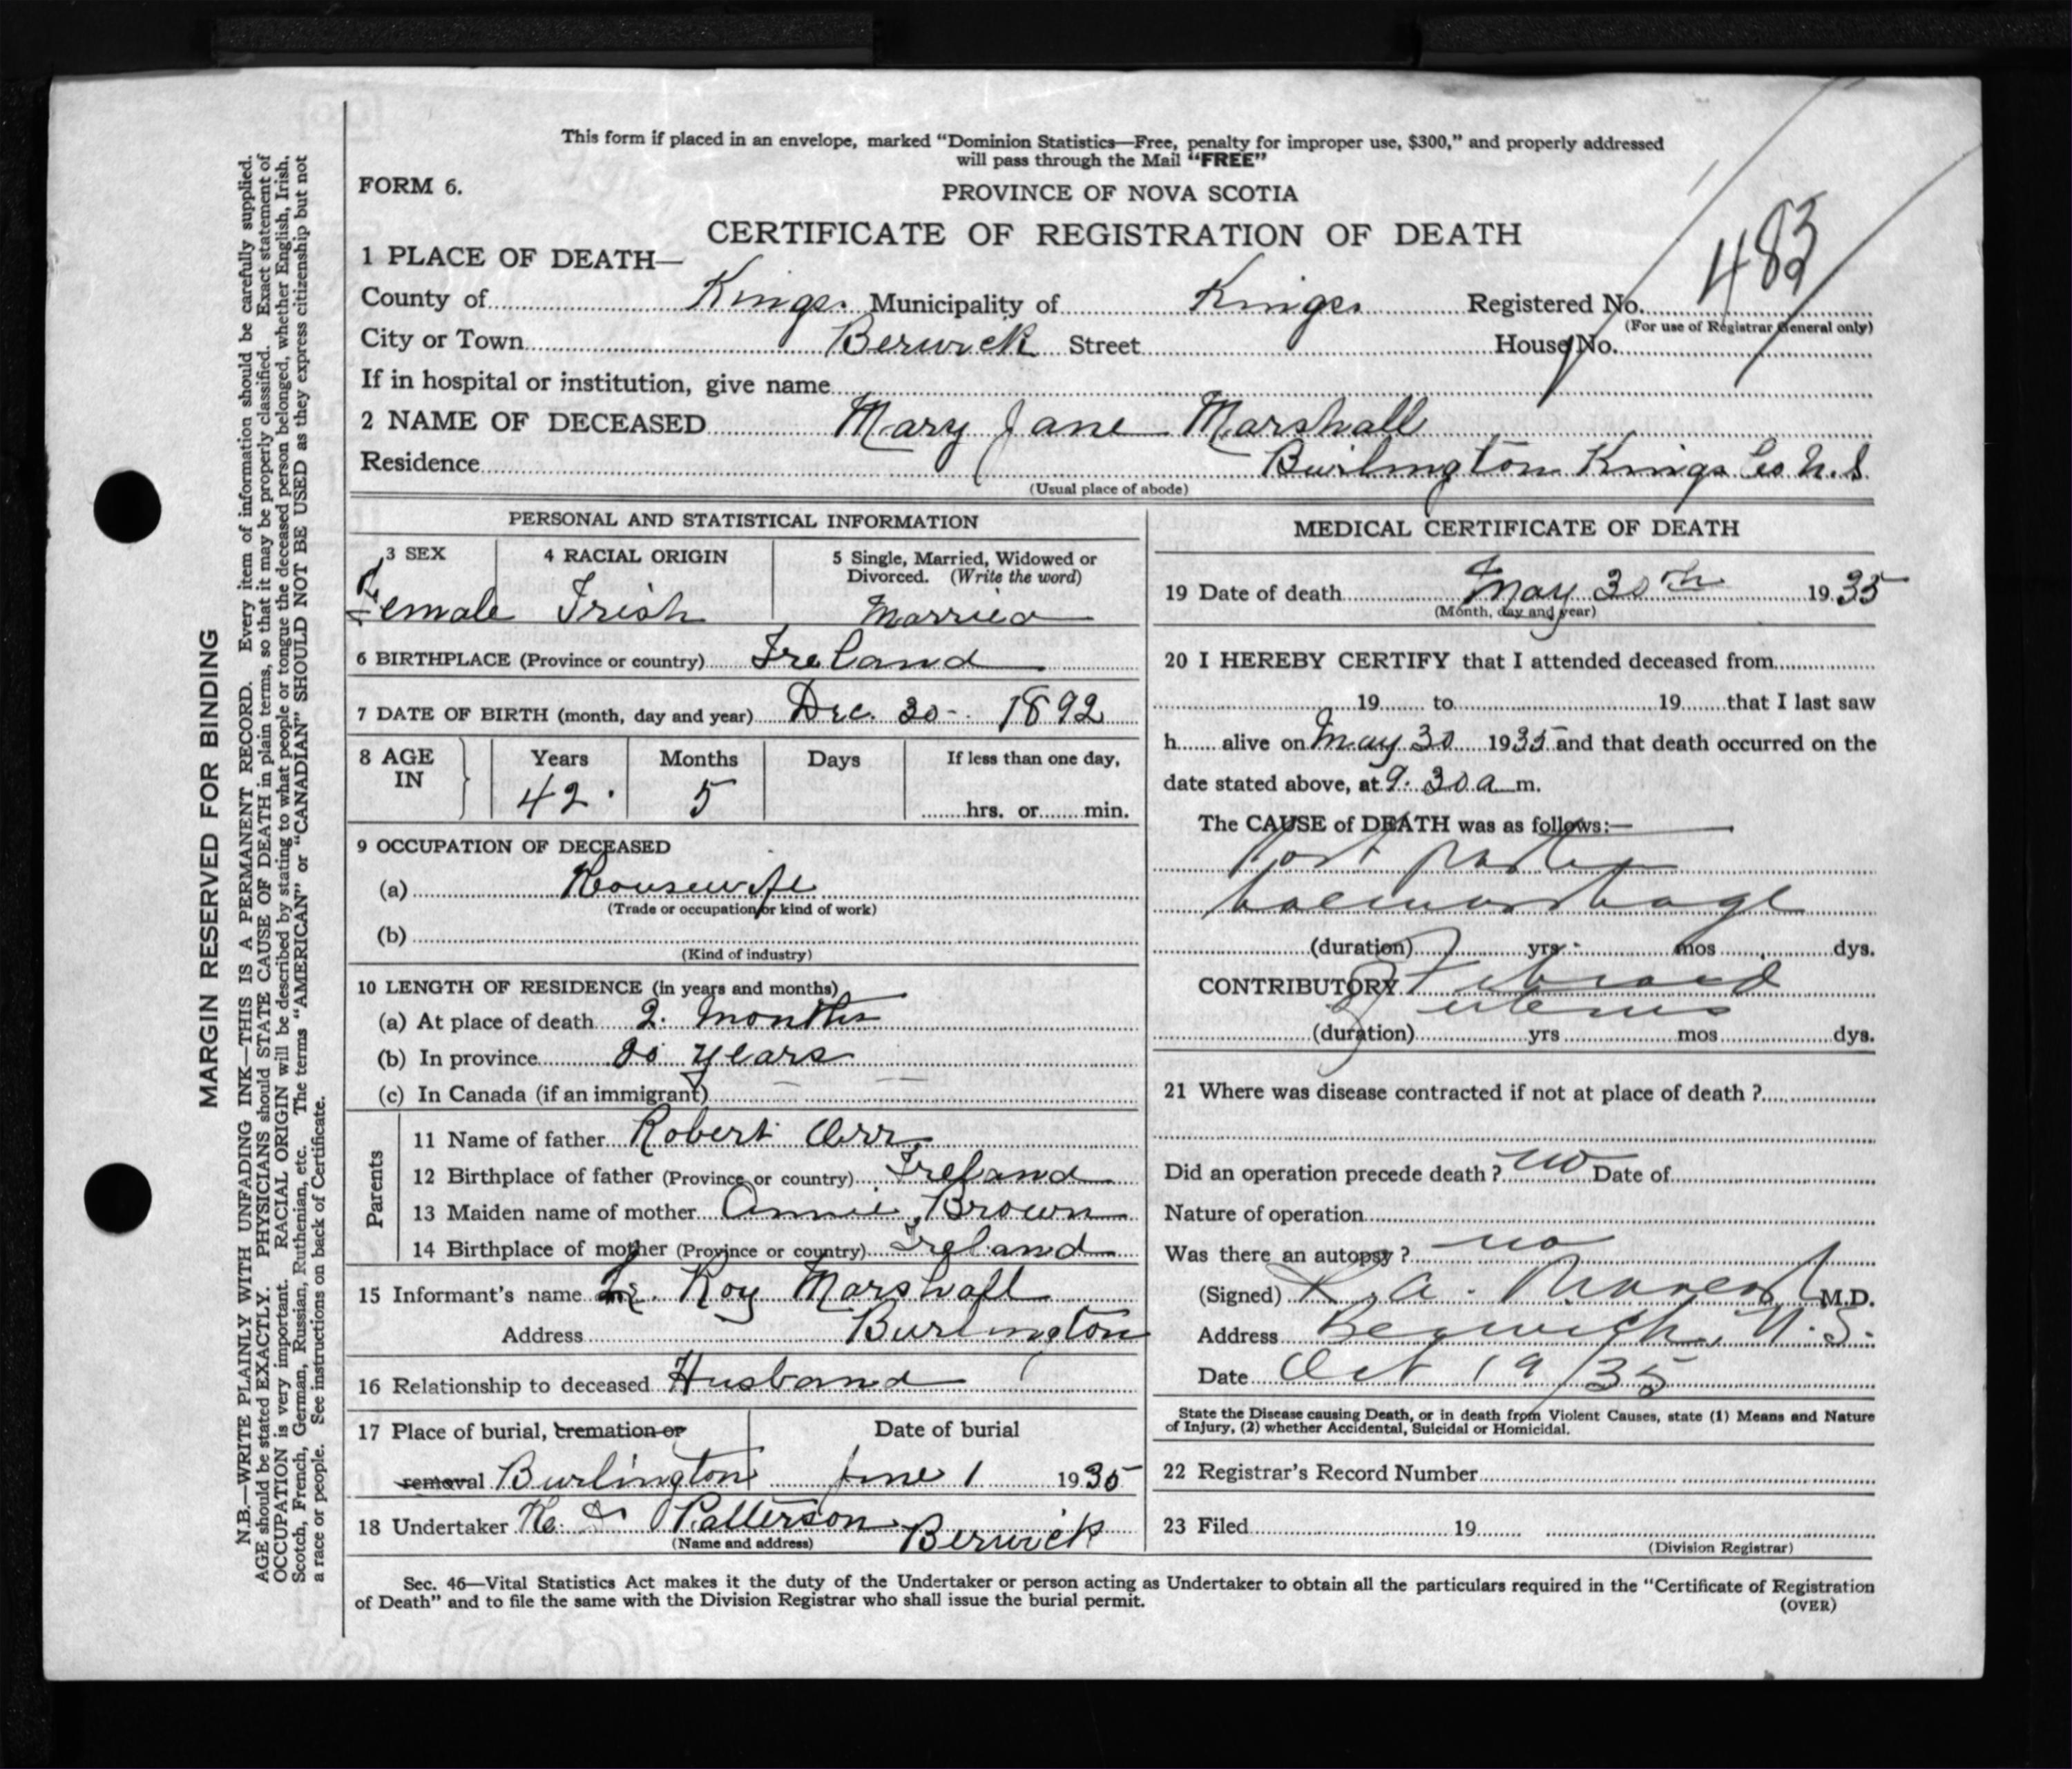 This form if placed in an envelope, marked “Dominion Statistics—Free, penalty for improper use, $300,” and properly addressed
will pass through the Mail “FREE”
FORM 6.
PROVINCE OF NOVA SCOTIA
CERTIFICATE OF REGISTRATION OF DEATH
483
1 PLACE OF DEATH—
County of Kings. Municipality of Kings. Registered No.
(For use of Registrar General only)
City or Town Berwick Street House No.
If in hospital or institution, give name
2 NAME OF DECEASED Mary Jane Marshall
Residence Burlington Kings Co. N.S.
(Usual place of abode)
PERSONAL AND STATISTICAL INFORMATION
3 SEX 4 RACIAL ORIGIN 5 Single, Married, Widowed or
Divorced. (Write the word)
Female Irish Married
6 BIRTHPLACE (Province or country) Ireland
7 DATE OF BIRTH (month, day and year) Dec. 30 - 1892
8 AGE IN Years Months Days If less than one day,
42 5 hrs. or min.
9 OCCUPATION OF DECEASED
(a) Housewife
(Trade or occupation or kind of work)
(b)
(Kind of industry)
10 LENGTH OF RESIDENCE (in years and months)
(a) At place of death 2. Months
(b) In province 20 years
(c) In Canada (if an immigrant)
Parents
11 Name of father Robert Orr
12 Birthplace of father (Province or country) Ireland
13 Maiden name of mother Annie Brown
14 Birthplace of mother (Province or country) Ireland
15 Informant's name Roy Marshall
Address Burlington
16 Relationship to deceased Husband
17 Place of burial, cremation or Date of burial
removal Burlington June 1 1935
18 Undertaker Patterson Berwick
(Name and address)
MEDICAL CERTIFICATE OF DEATH
19 Date of death May 30th 1935
(Month, day and year)
20 I HEREBY CERTIFY that I attended deceased from
19 to 19 that I last saw
h alive on May 30 1935 and that death occurred on the
date stated above, at 9.30 a m.
The CAUSE of DEATH was as follows:—
Post partum
haemorrhage
(duration) yrs mos dys.
CONTRIBUTORY Fibroid
uterus
(duration) yrs mos dys.
21 Where was disease contracted if not at place of death ?
Did an operation precede death ? no Date of
Nature of operation
Was there an autopsy ? no
(Signed) M.D.
Address Berwick, N.S.
Date Oct 19/35
State the Disease causing Death, or in death from Violent Causes, state (1) Means and Nature
of Injury, (2) whether Accidental, Suicidal or Homicidal.
22 Registrar's Record Number
23 Filed 19
(Division Registrar)
Sec. 46—Vital Statistics Act makes it the duty of the Undertaker or person acting as Undertaker to obtain all the particulars required in the “Certificate of Registration
of Death” and to file the same with the Division Registrar who shall issue the burial permit.
(OVER)
MARGIN RESERVED FOR BINDING
N.B.—WRITE PLAINLY WITH UNFADING INK—THIS IS A PERMANENT RECORD. Every item of information should be carefully supplied.
AGE should be stated EXACTLY. PHYSICIANS should STATE CAUSE OF DEATH in plain terms, so that it may be properly classified. Exact statement of
OCCUPATION is very important. RACIAL ORIGIN will be described by stating to what people or tongue the deceased person belonged, whether English, Irish,
Scotch, French, German, Russian, Ruthenian, etc. The terms “AMERICAN” or “CANADIAN” SHOULD NOT BE USED as they express citizenship but not
a race or people. See instructions on back of Certificate.